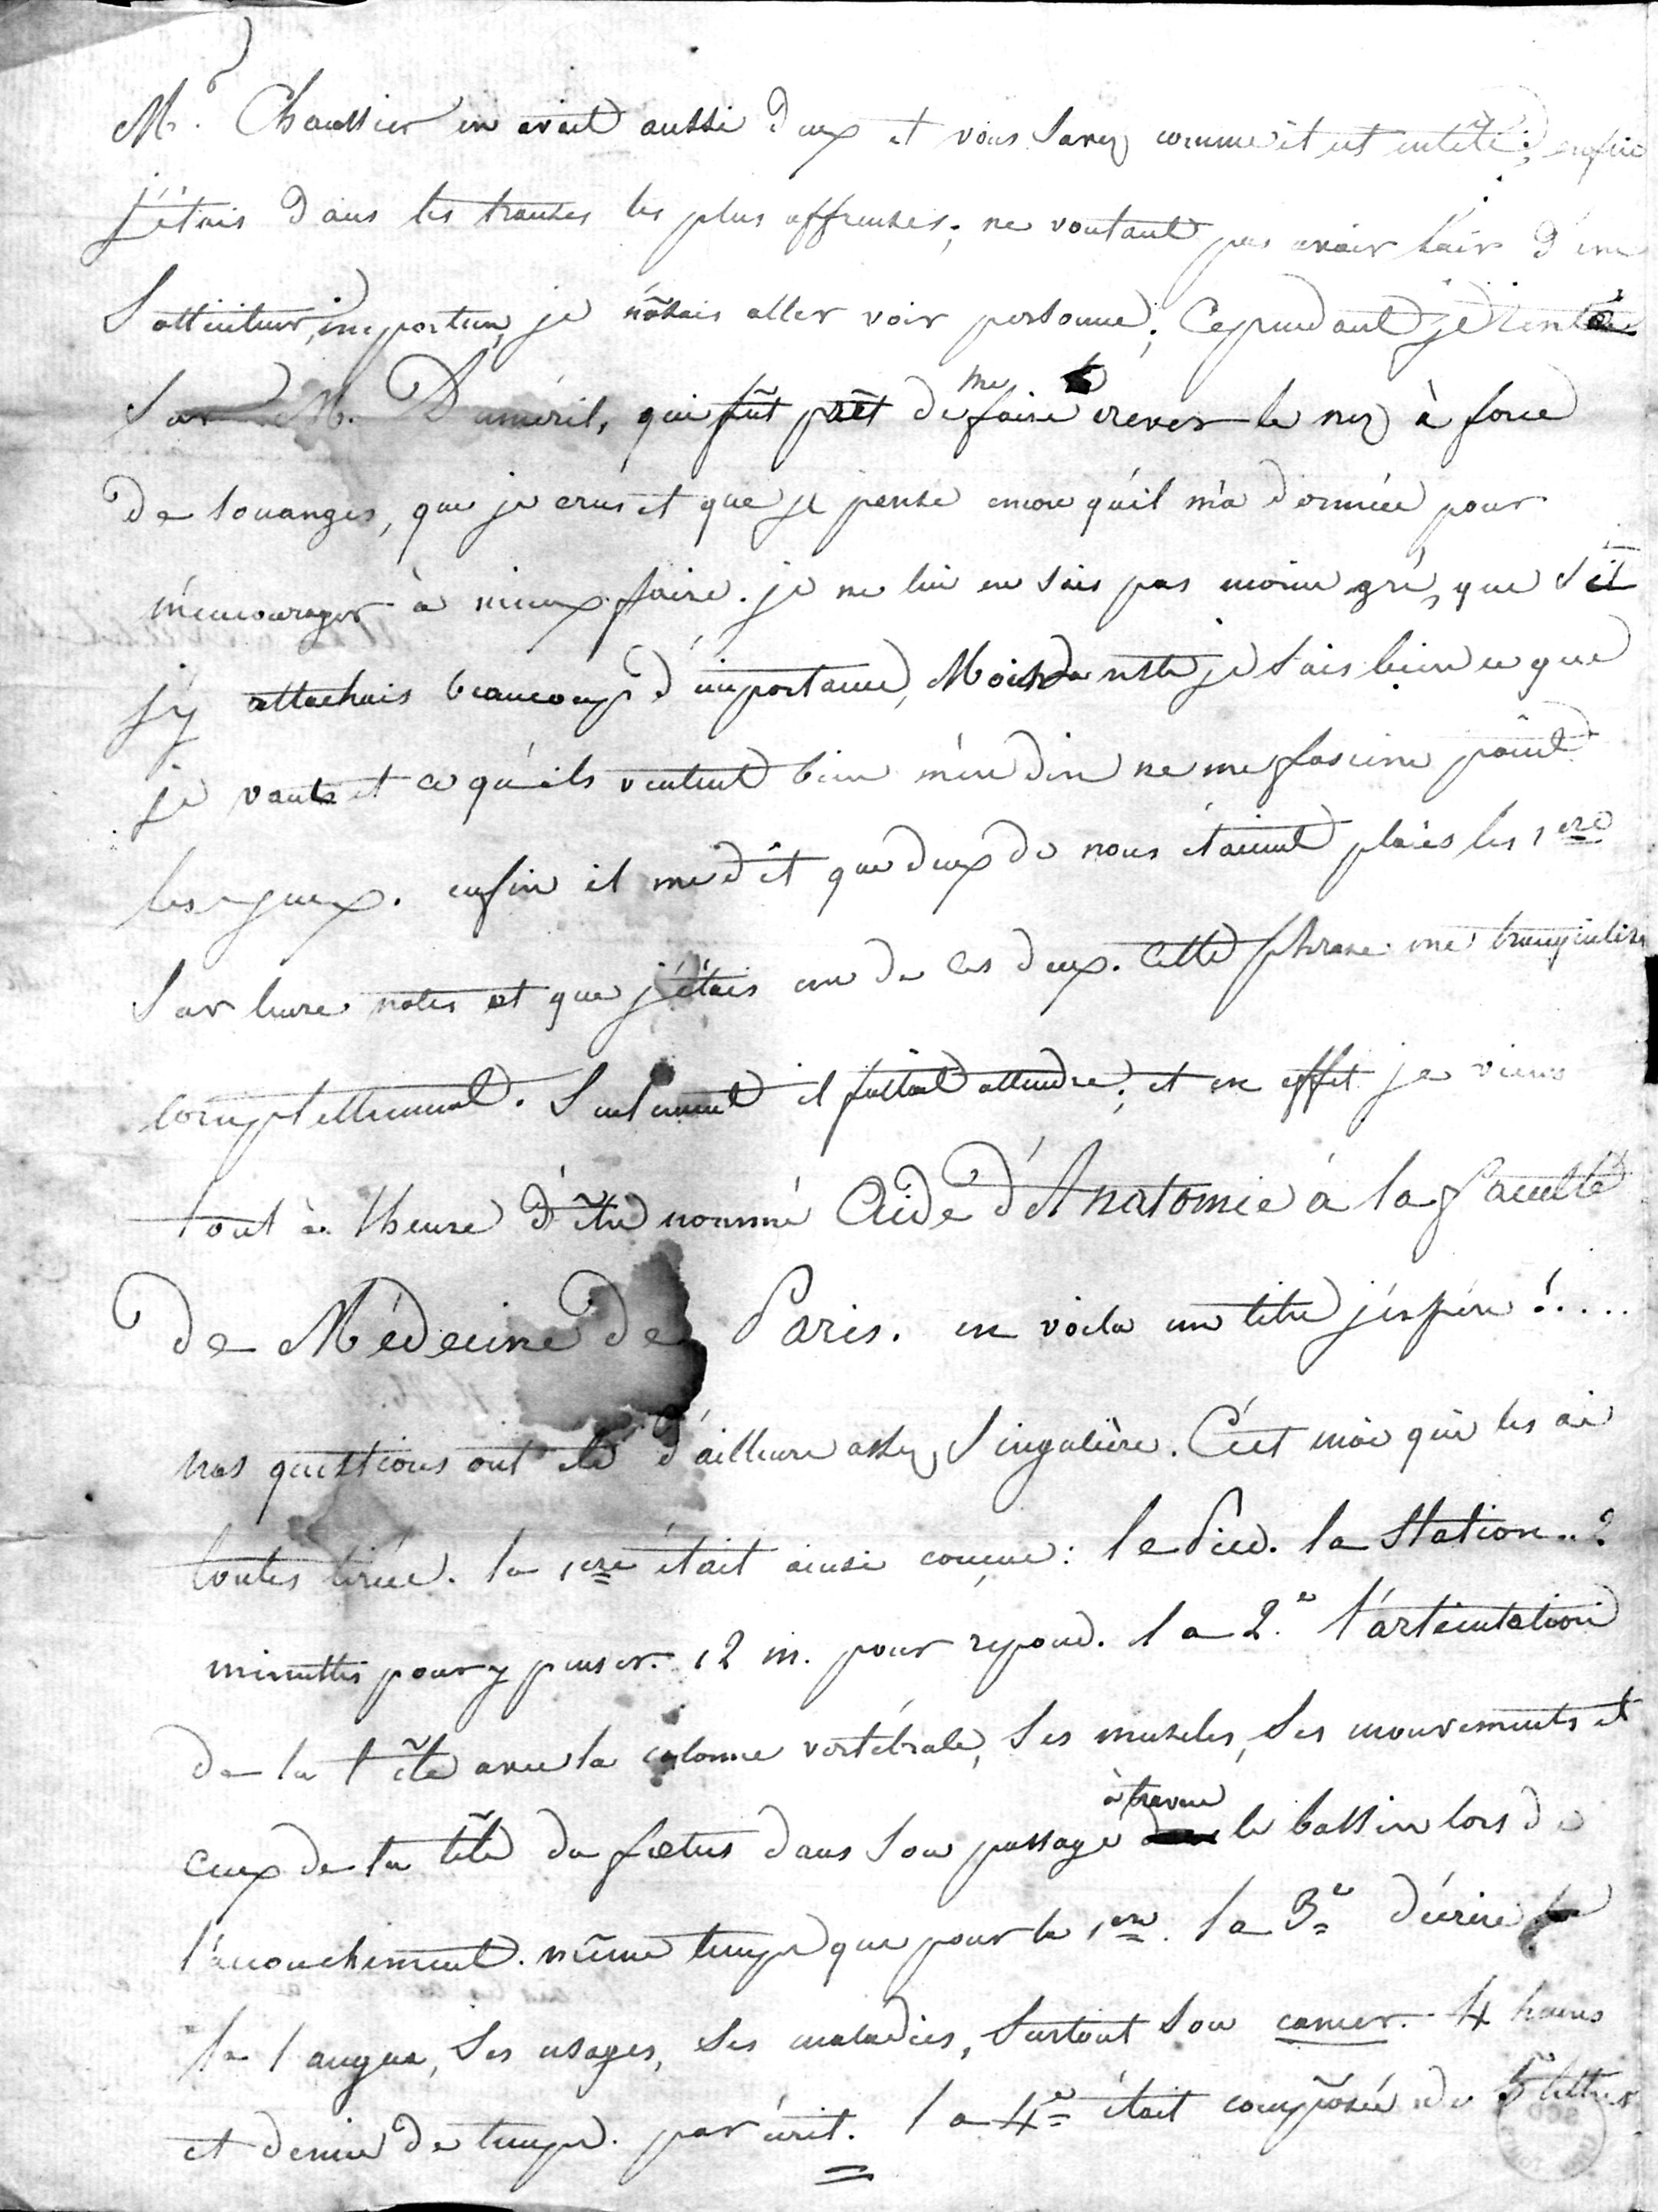 Mr. Chaussier en avait aussi deux et vous savez comme il est entêté; enfin
j'étais dans les transes les plus affreuses; ne voulant pas avoir l'air d'un
solliciteur, importun, je n'osais aller voir personne; Cependant je tentai
sur M. Duméril, qui fût prêt de me faire crever le nez à force
de louanges, que je crus et que je pense encore qu'il m'a donnée pour
m'encourager à mieux faire. je ne lui en sais pas moins gré, que si
j'y attachais beaucoup d'importance, Mais du reste je sais bien ce que
je vaut et ce qu'ils veulent bien m'en dire ne me fascine point
les yeux. enfin il me dit que deux de nous étaient placés les 1ers
sur leurs notes et que j'étais un de ces deux. cette phrase me tranquilisa
complettement. Seulement il fallait attendre; et en effet je viens
tout à l'heure d'être nommé Aide d'Anatomie à la faculté
de Médecine de Paris. en voila un titre j'espère !....
nos questions ont été d'ailleurs assez singulière. C'est moi qui les ai
toutes tirée. la 1ere était ainsi conçue: le Pied. la Station.. 2
minuttes pour y penser. 12 m. pour repond. la 2e l'articulation
de la tête avec la colonne vertébrale, ses muscles, ses mouvements et
ceux de la tête du fœtus dans son passage à travers le bassin lors de
l'accouchement. même temps que pour la 1ere. la 3e décrire
la langue, ses usages, ses maladies, surtout son cancer. 4 heures
et demie de temps. par écrit. la 4e était composée de 5 lettres